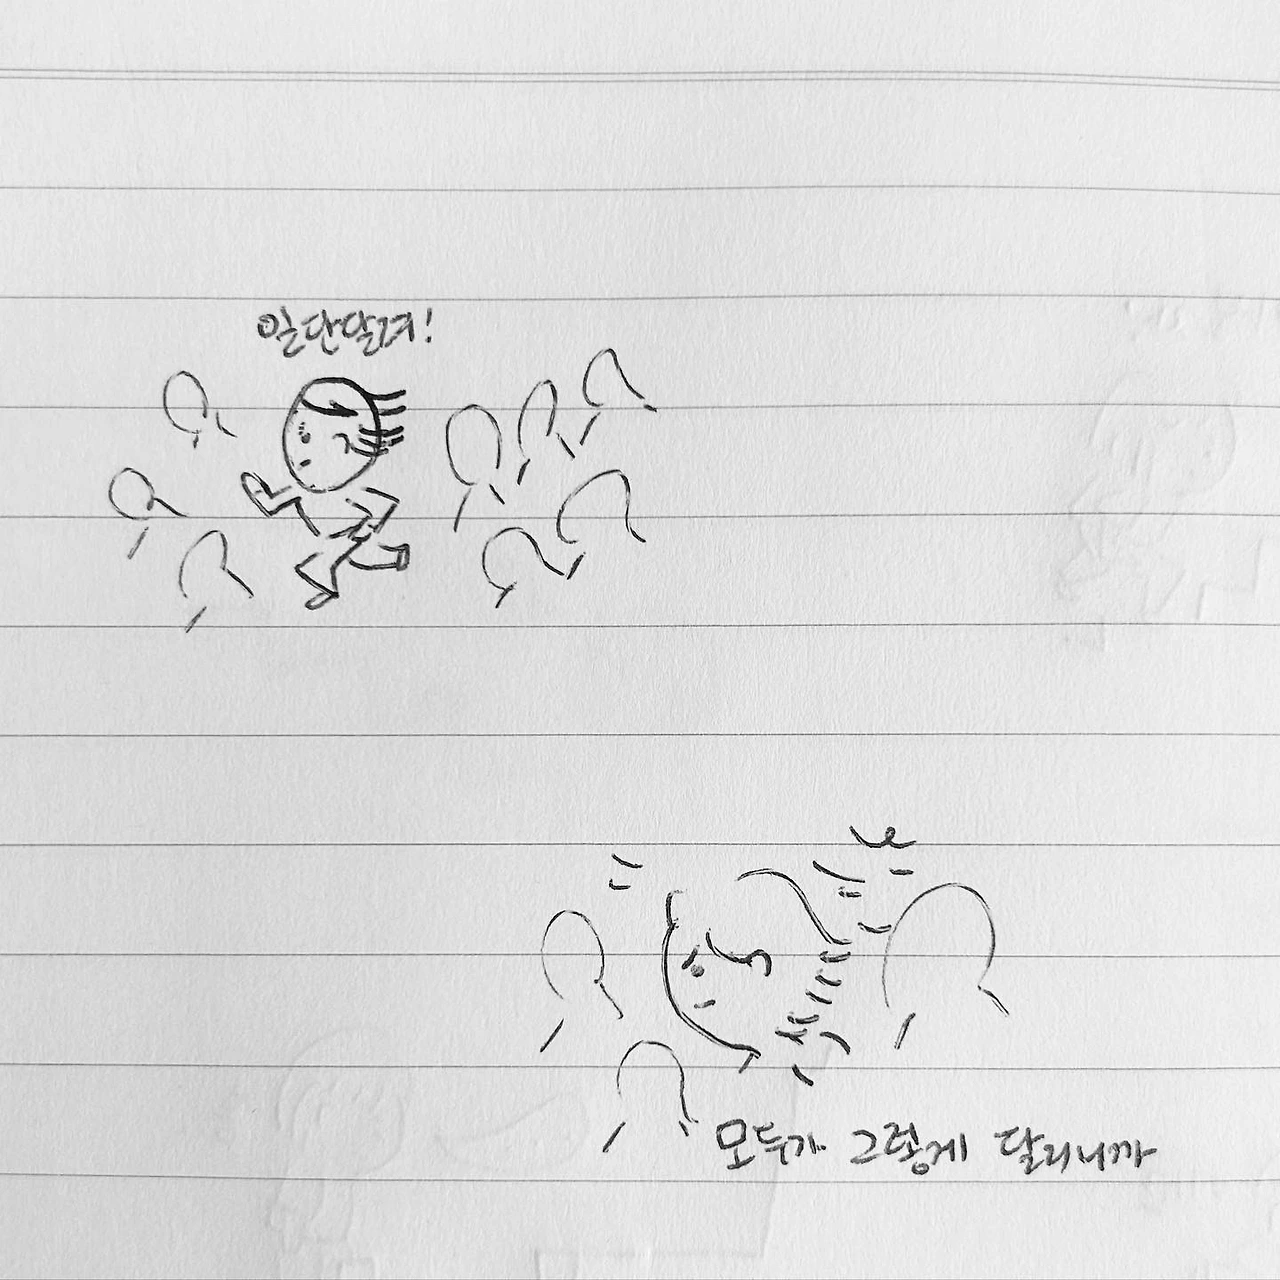 일단달려!
모두가 그렇게 달리니까